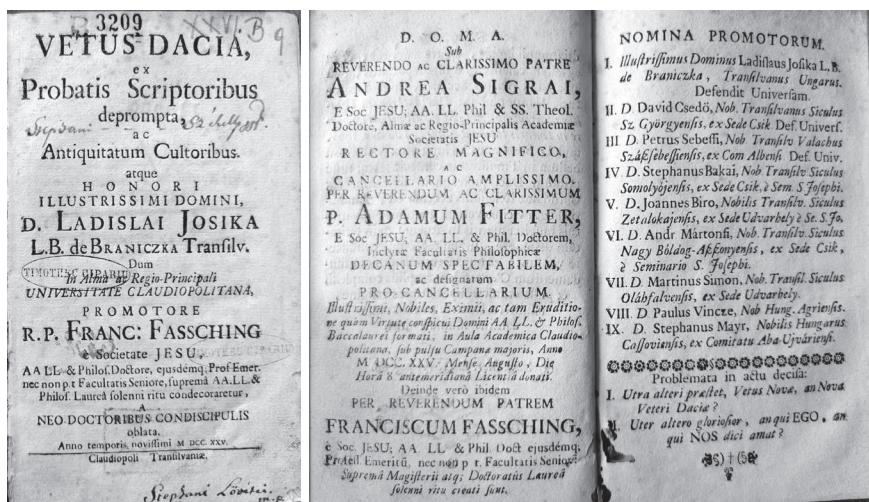 3209
XXVI. B 9
VETUS DACIA,
ex
Probatis Scriptoribus
deprompta,
ac
Antiquitatum Cultoribus.
atque
HONORI
ILLUSTRISSIMI DOMINI,
D. LADISLAI JOSIKA
L.B. de BRANICZKA Transilv.
Dum
TIMOTEI CIPARIU
In Alma ac Regio-Principali
UNIVERSITATE CLAUDIOPOLITANA,
PROMOTORE
R.P. FRANC: FASSCHING
è Societate JESU,
AA LL & Philos. Doctore, ejusdémq; Prof Emer.
nec non p t Facultatis Seniore, supremâ AA.LL.&
Philos. Laureâ solenni ritu condecoraretur,
A
NEO-DOCTORIBUS CONDISCIPULIS
oblata.
Anno temporis novissimi M DCC. XXV.
Claudiopoli Transilvaniæ.
Stephani
D. O. M. A.
Sub
REVERENDO AC CLARISSIMO PATRE
ANDREA SIGRAI,
E Soc JESU; AA. LL. Phil & SS. Theol.
Doctore, Almæ ac Regio-Principalis Academiæ
Societatis JESU
RECTORE MAGNIFICO,
AC
CANCELLARIO AMPLISSIMO.
PER REVERENDUM AC CLARISSIMUM
P. ADAMUM FITTER,
E Soc JESU; AA. LL. & Phil. Doctorem,
Inclytæ Facultatis Philosophicæ
DECANUM SPECTABILEM,
ac designatum
PRO-CANCELLARIUM.
Illustrissimi, Nobiles, Eximii, ac tam Eruditio-
ne quàm Virtute conspicui Domini AA LL. & Philos.
Baccalaurei formati, in Aula Academica Claudio-
politana, sub pulsu Campanæ majoris, Anno
M DCC. XXV. Mense Augusto, Die
Horâ 8 antemeridianâ Licentiâ donati.
Deinde verò ibidem
PER REVERENDUM PATREM
FRANCISCUM FASSCHING,
è Soc. JESU; AA. LL & Phil. Doct ejusdémq;
Profess. Emeritū, nec non p t. Facultatis Seniorē
Supremâ Magisterii atq; Doctoratûs Laureâ
solenni ritu creati sunt.
NOMINA PROMOTORUM.
I. Illustrissimus Dominus Ladislaus Josika L.B.
de Braniczka, Transilvanus Ungarus.
Defendit Universam.
II. D. David Csedö, Nob. Transilvanus Siculus
Sz Györgyensis, ex Sede Csik Def. Univers.
III D. Petrus Sebessi, Nob Transilv Valachus
Szászsebessiensis, ex Com Albensi Def. Univ.
IV D. Stephanus Bakai, Nob. Transilv Siculus
Somolyójensis, ex Sede Csik, è Sem. S Josephi.
V. D. Joannes Biro, Nobilis Transilv. Siculus
Zetalokajensis, ex Sede Udvarhely è Se. S. Jo.
VI. D. Andr Mártonfi, Nob. Transilv Siculus
Nagy Bóldog-Asszonyensis, ex Sede Csik,
è Seminario S. Josephi.
VII. D. Martinus Simon, Nob. Transil. Siculus
Oláhfalvensis, ex Sede Udvarhely.
VIII. D. Paulus Vincze, Nob Hung. Agriensis.
IX. D. Stephanus Mayr, Nobilis Hungarus
Cassoviensis, ex Comitatu Aba Ujváriensi.
Problemata in actu decisa:
I. Utra alteri præstet, Vetus Novæ, an Nova
Veteri Daciæ?
Uter altero gloriosior, an qui EGO, an
qui NOS dici amat?